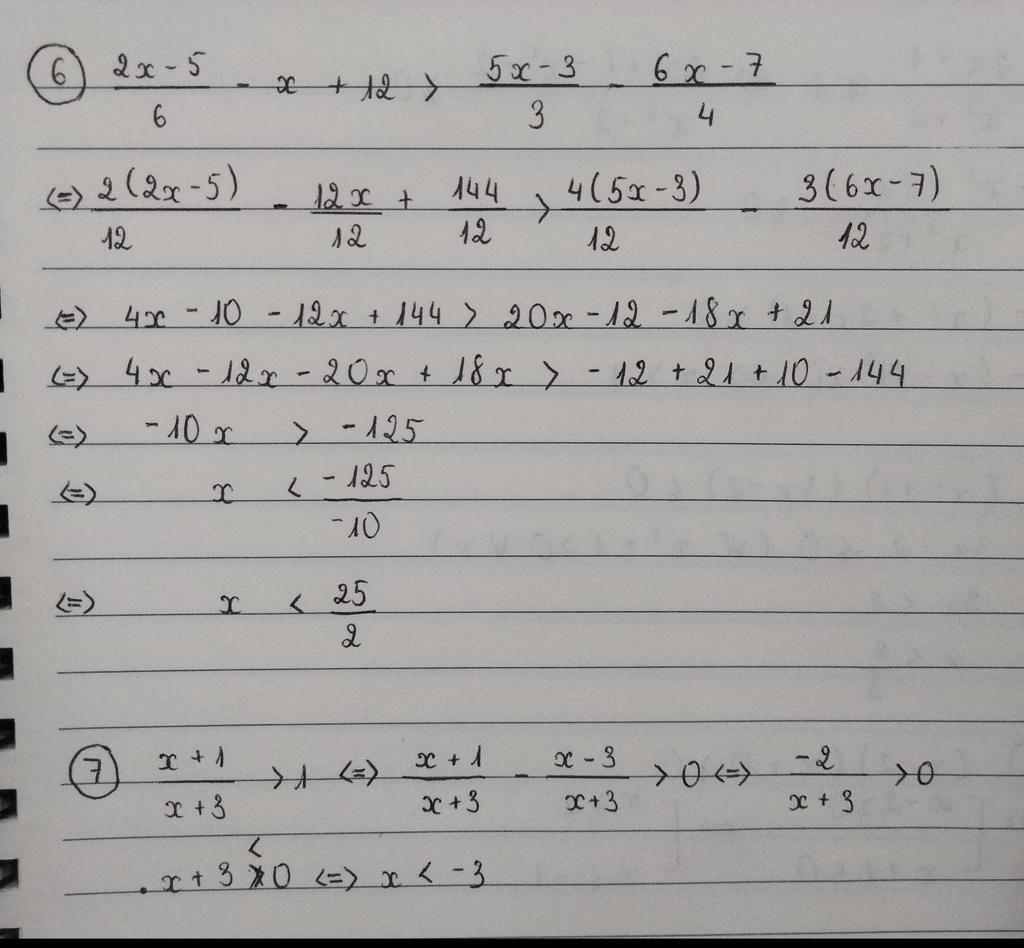 ⑥ (2x - 5)/6 - x + 12 > (5x - 3)/3 - (6x - 7)/4
<=> 2(2x - 5)/12 - 12x/12 + 144/12 > 4(5x - 3)/12 - 3(6x - 7)/12
<=> 4x - 10 - 12x + 144 > 20x - 12 - 18x + 21
<=> 4x - 12x - 20x + 18x > -12 + 21 + 10 - 144
<=> -10x > -125
<=> x < -125/-10
<=> x < 25/2
⑦ (x + 1)/(x + 3) > 1 <=> (x + 1)/(x + 3) - (x - 3)/(x + 3) > 0 <=> -2/(x + 3) > 0
. x + 3 < 0 <=> x < -3